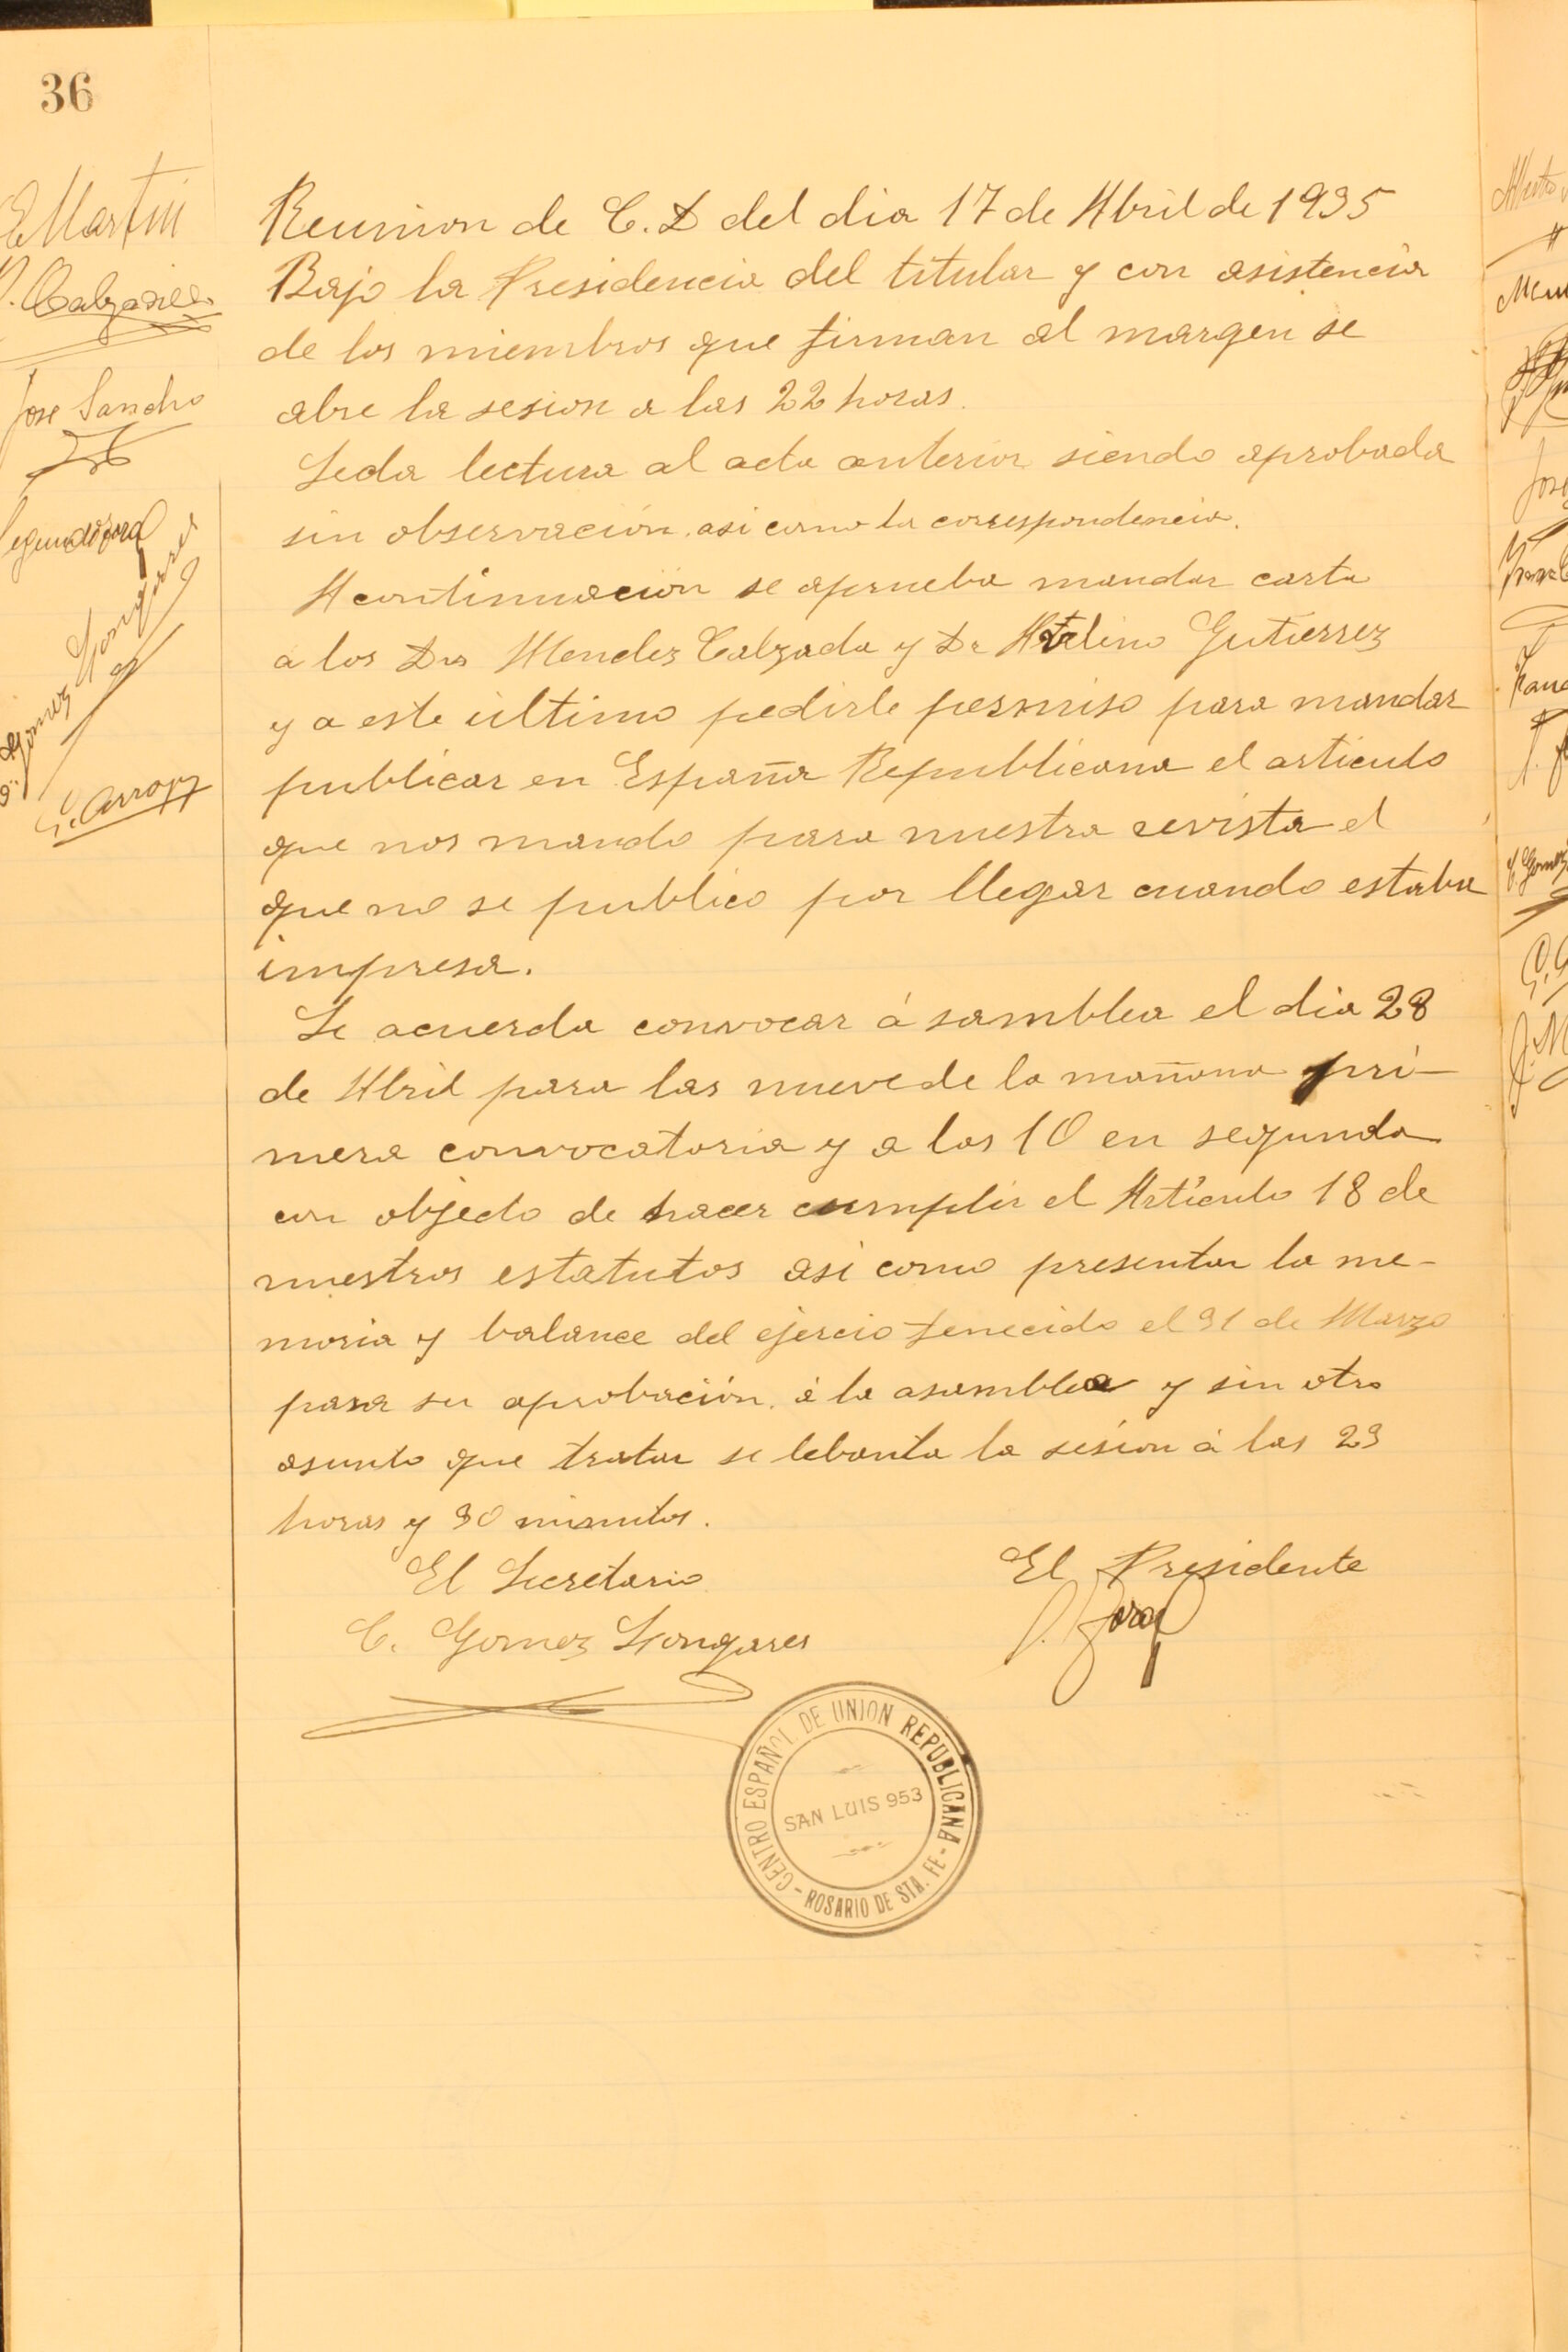 36
E Martin
Jose Sancho
Reunion de C. D del dia 17 de Abril de 1935
Bajo la Presidencia del titular y con asistencia
de los miembros que firman al margen se
abre la sesion a las 22 horas.
Seda lectura al acta anterior siendo aprobada
sin observación. asi como la correspondencia.
A continuación se aprueba mandar carta
a los Drs Mendez Calzada y Dr Gutierrez
y a este ultimo pedirle permiso para mandar
publicar en España Republicana el articulo
que nos mando para nuestra revista el
que no se publico por llegar cuando estaba
impresa.
Se acuerda convocar á samblea el dia 28
de Abril para las nueve de la mañana pri-
mera convocatoria y a las 10 en segunda
con objecto de hacer cumplir el Artículo 18 de
nuestros estatutos asi como presentar la me-
moria y balance del ejercio fenecido el 31 de Marzo
para su aprobación. á la asamblea y sin otro
asunto que tratar se lebanta la sesion á las 23
horas y 30 minutos.
El Secretario
El Presidente
C. Gomez Longares
CENTRO ESPAÑOL DE UNION REPUBLICANA
SAN LUIS 953
- ROSARIO DE STA. FE -